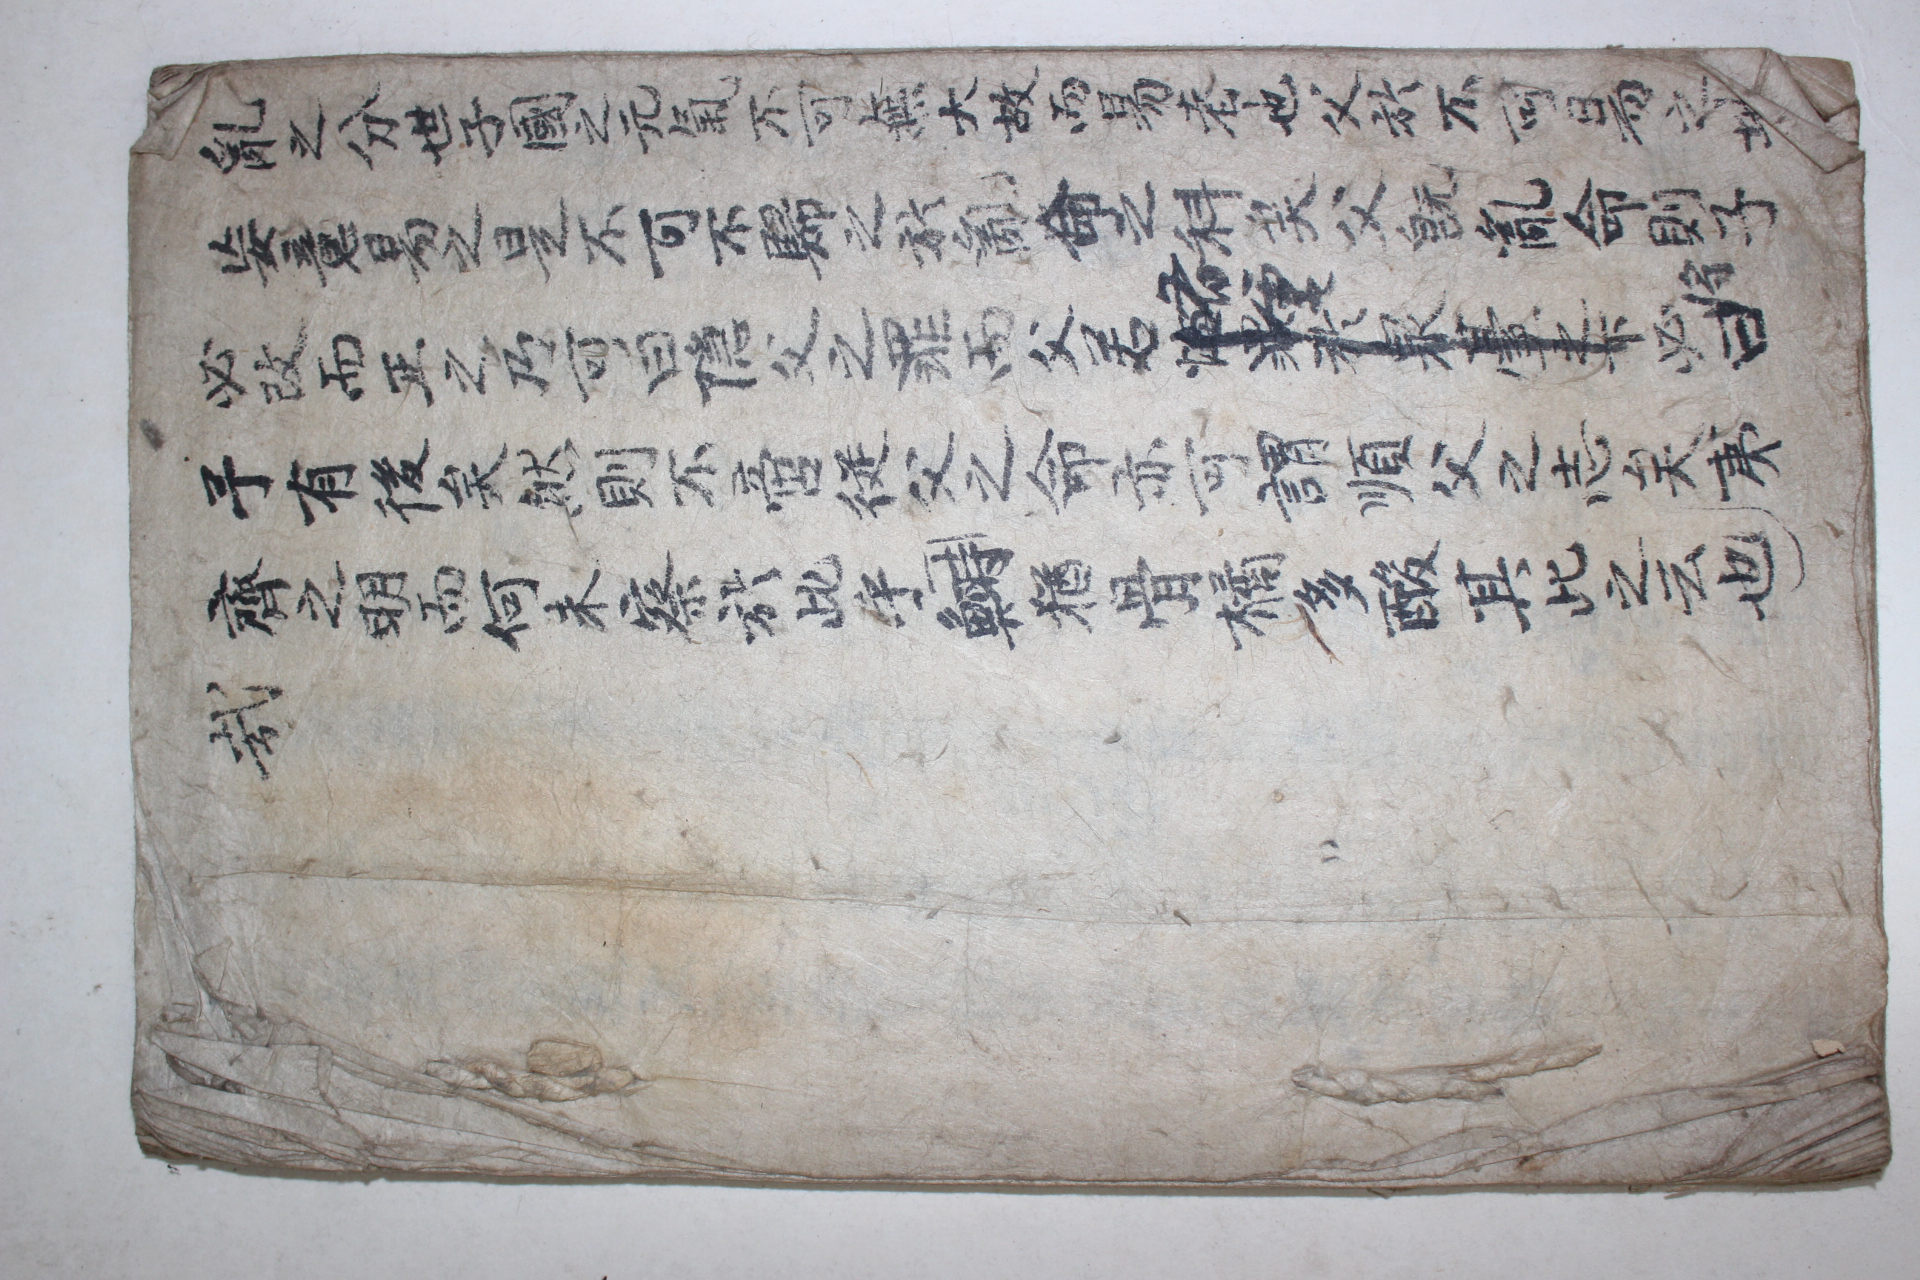 亂之分世子國之元氣不可無大故而易者也父於不可易之地
妄意易之是不可不歸之於亂命之科矣父旣亂命則子
必改而正之乃可曰隱父之罪而父若有靈必將曰
予有後矣然則不啻從父之命亦可謂順父之志矣夷
齊之明而何未察於此乎鰣猶骨橘多酸其此之云也
哉